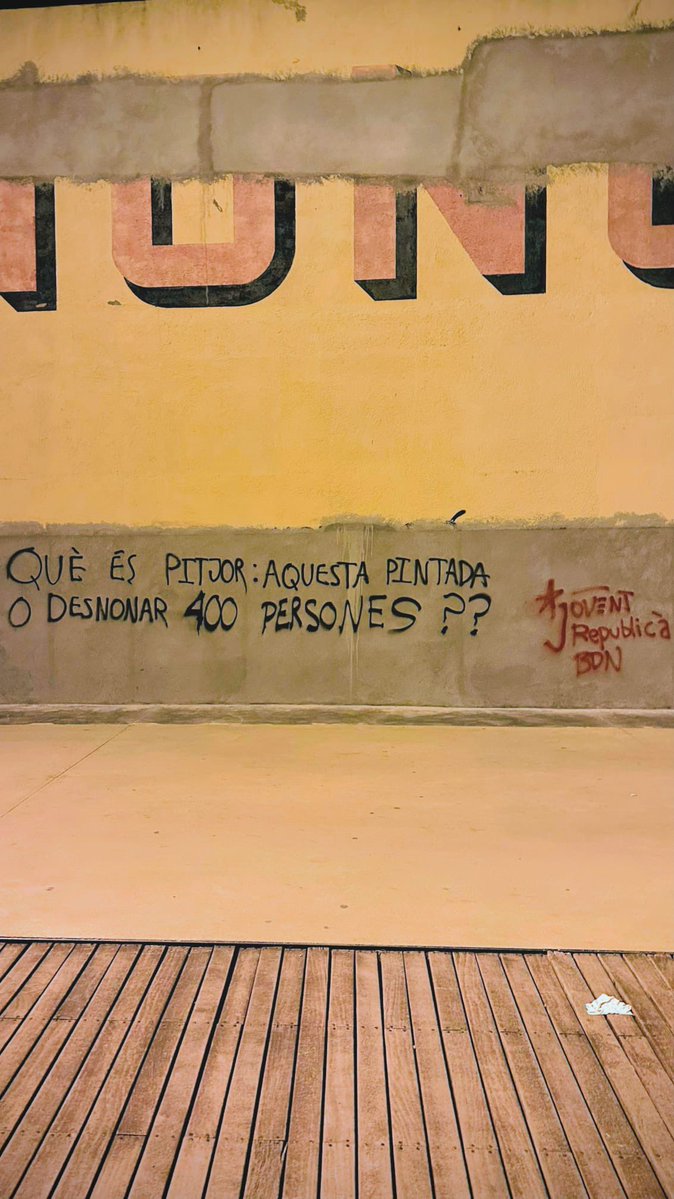 QUÈ ÉS PITJOR: AQUESTA PINTADA
O DESNONAR 400 PERSONES ??
*JOVENT
Republicà
BDN